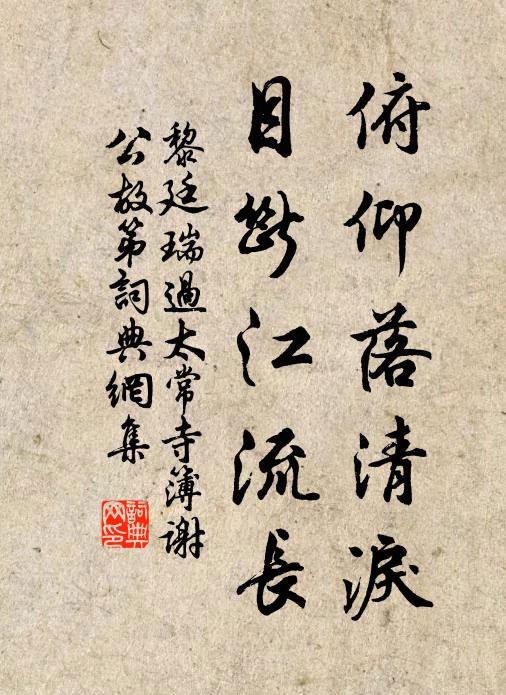 俯仰落清淚
目斷江流長
黎廷瑞過太常寺簿謝
公故第詞典網集
詞典網印